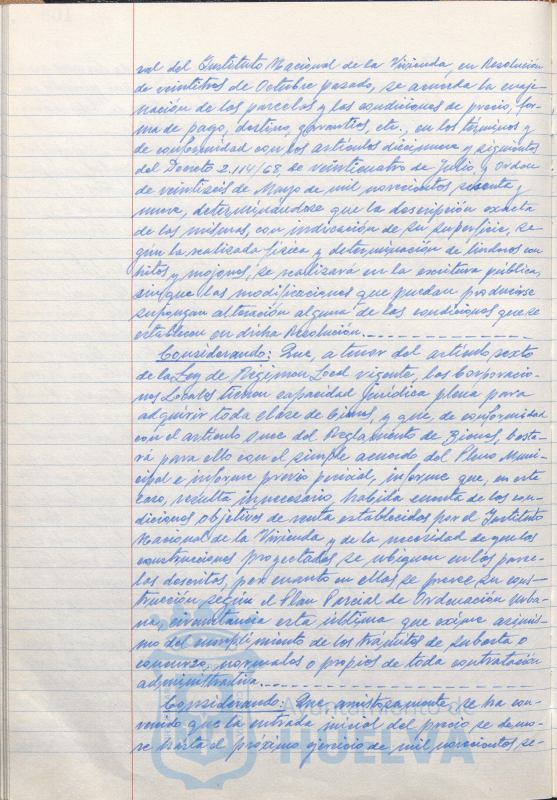 ral del Instituto Nacional de la Vivienda, en Resolución
de veintitres de Octubre pasado, se acuerda la enaje-
nación de las parcelas y las condiciones de precio, for-
ma de pago, destino, garantías, etc., en los términos y
de conformidad con los artículos diecinueve y siguientes
del Decreto 2.114/68, de veinticuatro de Julio, y Orden
de veintiseis de Mayo de mil novecientos sesenta y
nueve, determinándose que la descripción exacta
de las mismas, con indicación de su superficie, se-
gún la realizada física y determinación de linderos con
hitos y mojones, se realizará en la escritura pública,
sin que las modificaciones que puedan producirse
supongan alteración alguna de las condiciones que se
establecen en dicha Resolución.
Considerando: Que, a tenor del artículo sexto
de la Ley de Régimen Local vigente, las Corporacio-
nes Locales tienen capacidad jurídica plena para
adquirir toda clase de bienes, y que, de conformidad
con el artículo once del Reglamento de Bienes, basta-
rá para ello con el simple acuerdo del Pleno Muni-
cipal e informe previo pericial, informe que, en este
caso, resulta innecesario, habida cuenta de las con-
diciones objetivas de venta establecidas por el Instituto
Nacional de la Vivienda y de la necesidad de que las
construcciones proyectadas se ubiquen en las parce-
las descritas, por cuanto en ellas se preve su cons-
trucción según el Plan Parcial de Ordenación Urba-
na, circunstancia esta última que exime asimis-
mo del cumplimiento de los trámites de subasta o
concurso, normales o propios de toda contratación
administrativa.
Considerando: Que amistosamente se ha con-
venido que la entrada inicial del precio se demo-
re hasta el próximo ejercicio de mil novecientos se-
Ayuntamiento de
HUELVA